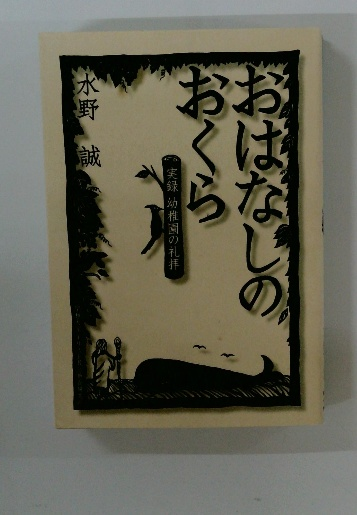 おはなしの
おくら
実録 幼稚園の礼拝
水野 誠